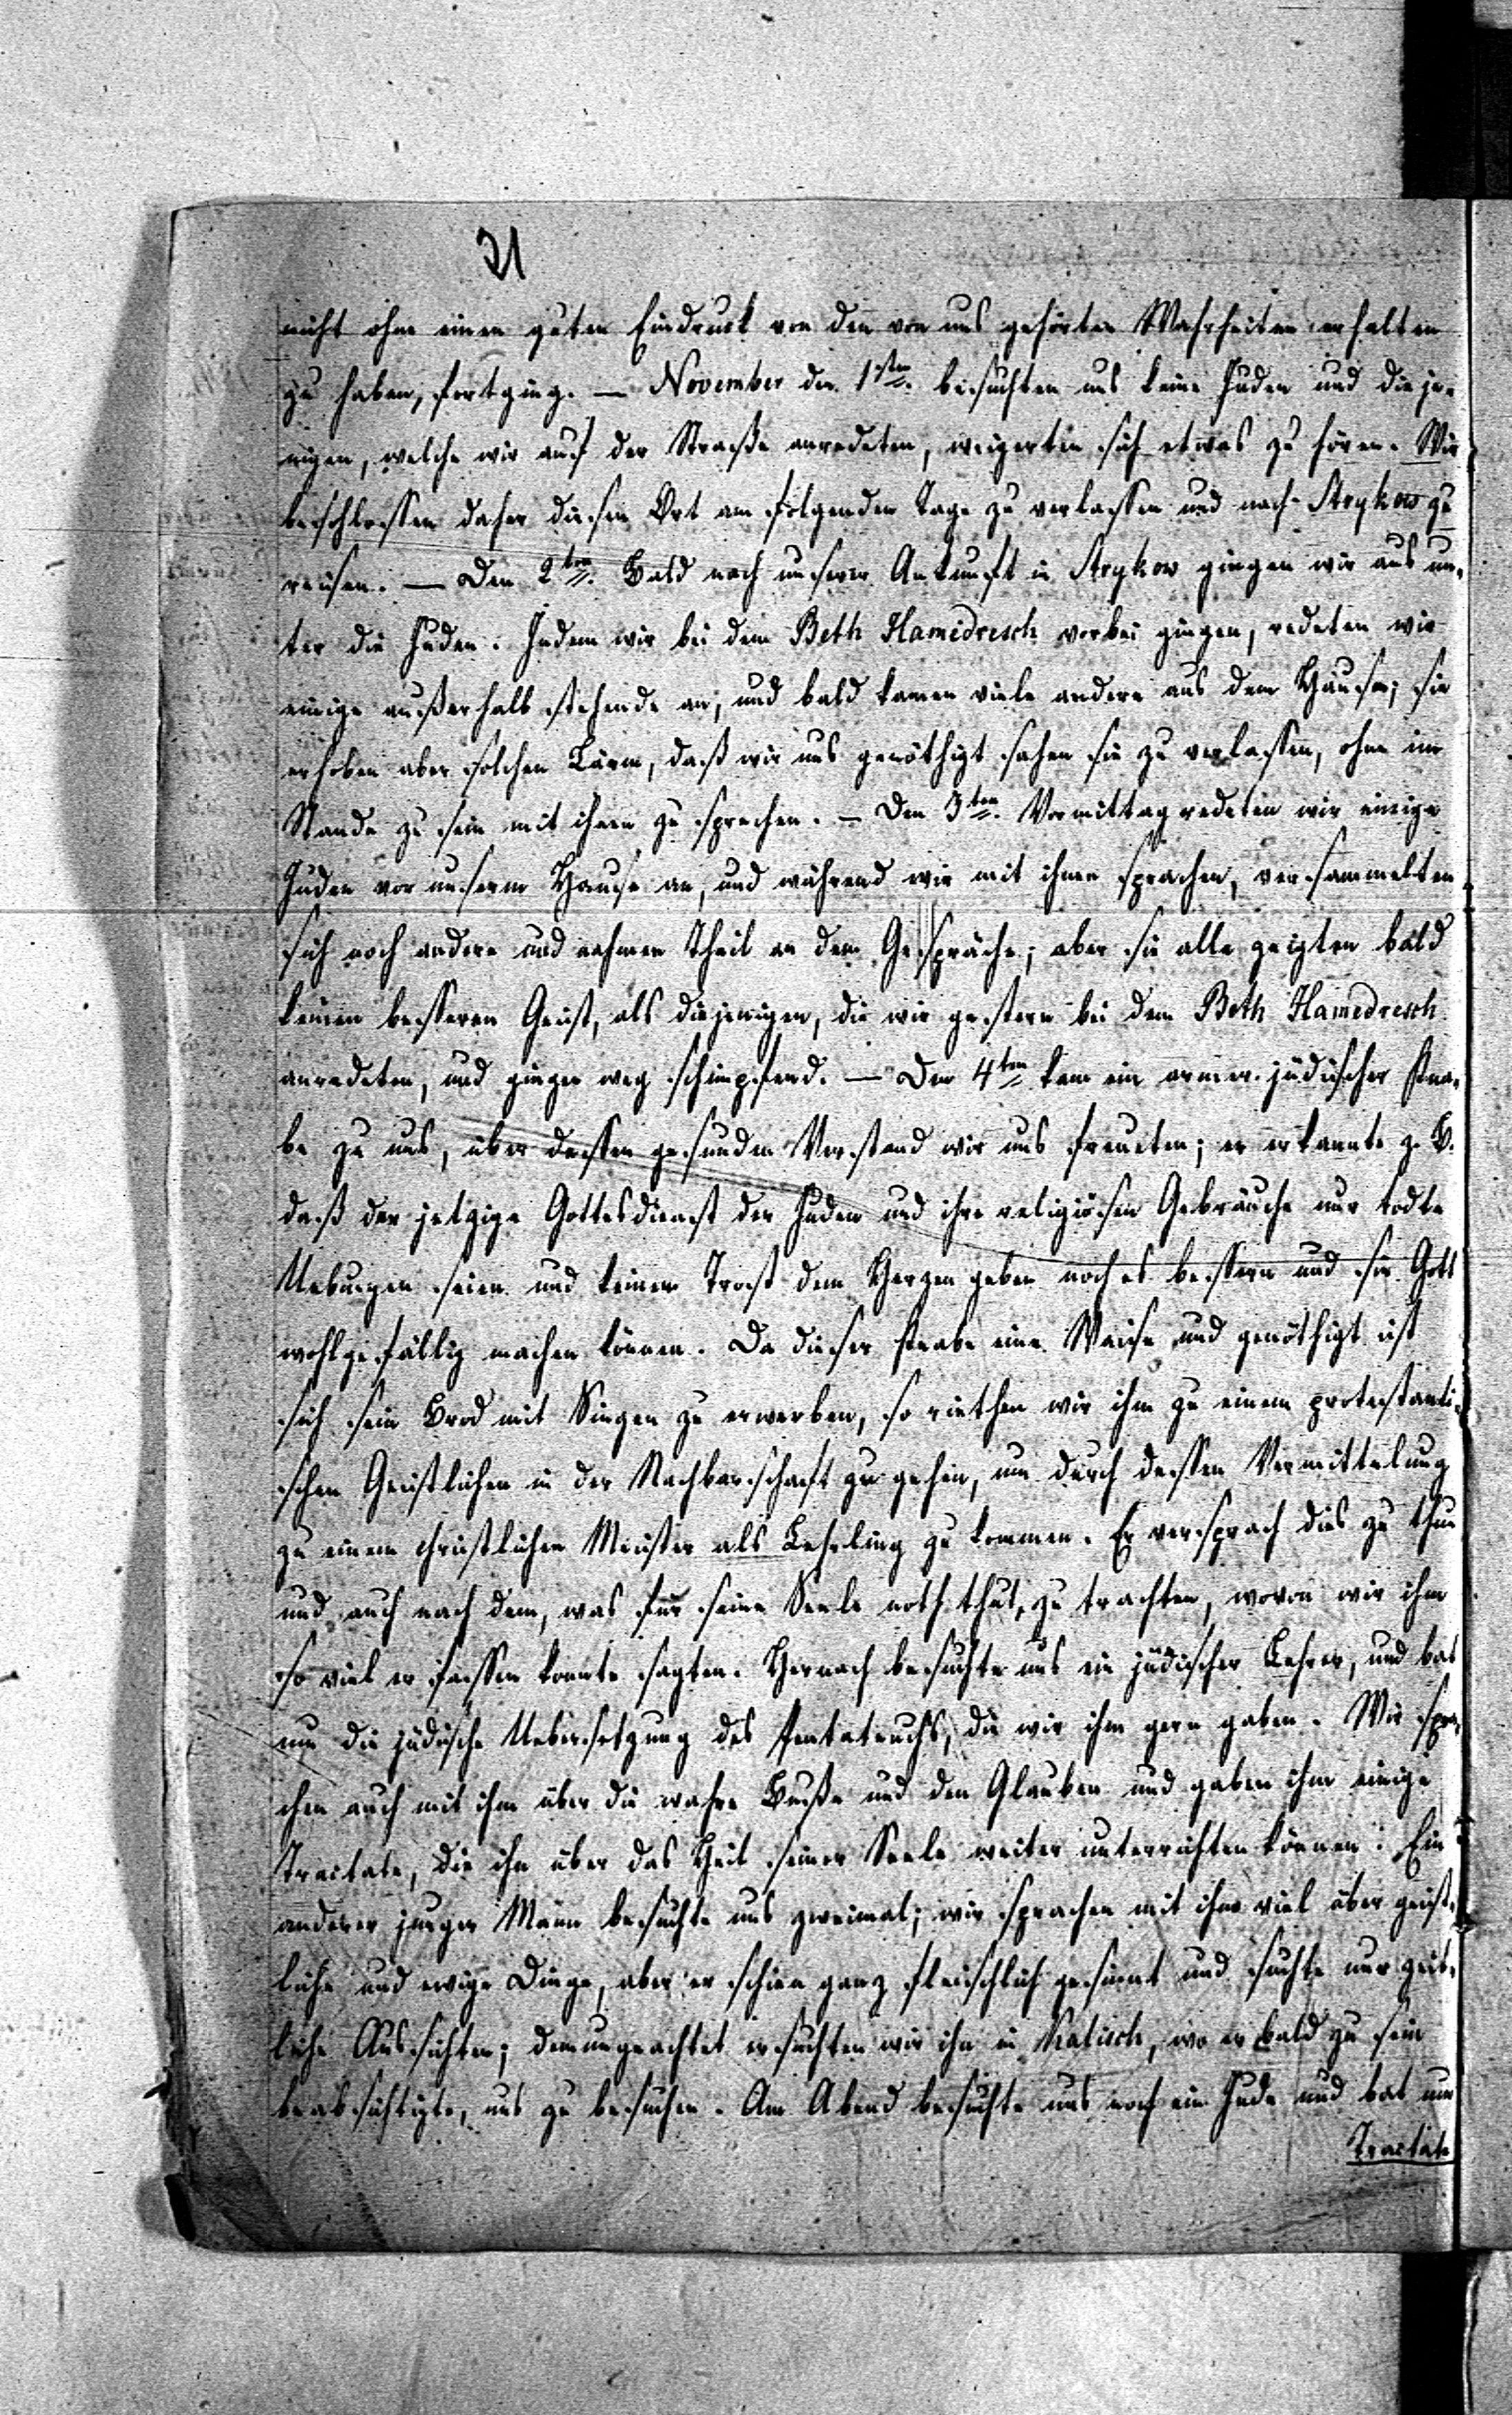 21
nicht ohne einen guten Eindruck von den von uns gehörten Wahrheiten erhalten
zu haben, fortging. — November den 1sten. besuchten uns keine Juden und dieje-
nigen, welche wir auf der Straße anredeten, weigerten sich etwas zu hören. Wir
beschlossen daher diesen Ort am folgenden Tage zu verlassen und nach Strykow zu
reisen. — Den 2ten. Bald nach unserer Ankunft in Strykow gingen wir aus un-
ter die Juden. Indem wir bei dem Beth Hamidresch vorbei gingen, redeten wir
einige außerhalb stehende an, und bald kamen viele andere aus dem Hause; sie
erhoben aber solchen Lärm, daß wir uns genöthigt sahen sie zu verlassen, ohne im
Stande zu sein mit ihnen zu sprechen. — Den 3ten. Vormittag redeten wir einige
Juden vor unserm Hause an, und während wir mit ihnen sprachen, versammelten
sich noch andere und nahmen Theil an dem Gespräche; aber sie alle zeigten bald
keinen besseren Geist, als diejenigen, die wir gestern bei dem Beth Hamedresch
anredeten, und gingen weg schimpfend. — Den 4ten kam ein armer jüdischer Kna-
be zu uns, über dessen gesunden Verstand wir uns freueten; er erkannte z. B.
daß der jetzige Gottesdienst der Juden und ihre religiösen Gebräuche nur todte
Uebungen seien und keinen Trost dem Herzen geben noch es bessern und sie Gott
wohlgefällig machen können. Da dieser Knabe eine Waise und genöthigt ist
sich sein Brod mit Singen zu erwerben, so riethen wir ihm zu einem protestanti-
schen Geistlichen in der Nachbarschaft zu gehen, um durch dessen Vermittelung
zu einem christlichen Meister als Lehrling zu kommen. Er versprach dies zu thun
und auch nach dem, was für seine Seele noth thut, zu trachten, wovon wir ihm
so viel er fassen konnte sagten. Hernach besuchte uns ein jüdischer Lehrer, und bat
um die jüdische Uebersetzung des Pentateuchs, die wir ihm gern gaben. Wir spra-
chen auch mit ihm über die wahre Buße und den Glauben und gaben ihm einige
Tractate, die ihn über das Heil seiner Seele weiter unterrichten können. Ein
anderer junger Mann besuchte uns zweimal; wir sprachen mit ihm viel über geist-
liche und ewige Dinge, aber er schien ganz fleischlich gesinnt und suchte nur zeit-
liche Aussichten; demungeachtet ersuchten wir ihn in Kalisch, wo er bald zu sein
beabsichtigte, uns zu besuchen. Am Abend besuchte uns noch ein Jude und bat um
Tractate